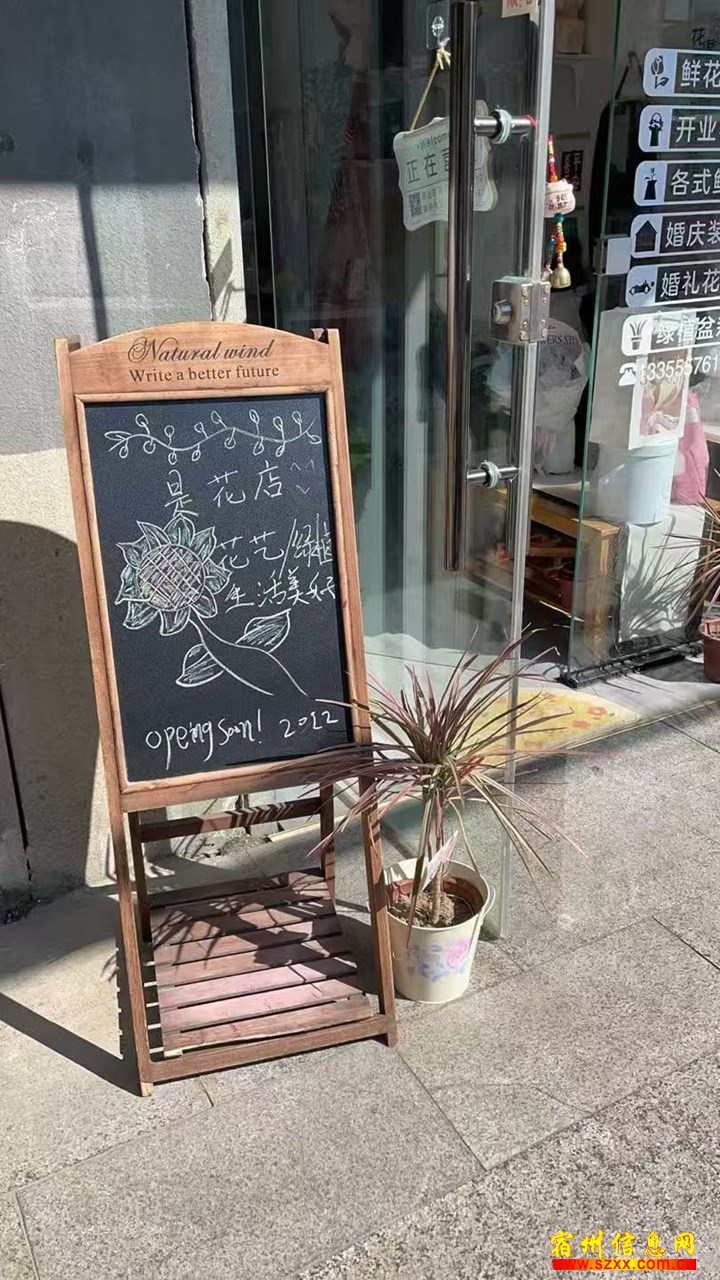 Natural wind
Write a better future
是花店
花艺/绿植
生活美好
opeing soon! 2022
Welcome
正在营
鲜花
开业
各式鲜
婚庆装
婚礼花
绿植盆
宿州信息网
www.szxx.com.cn